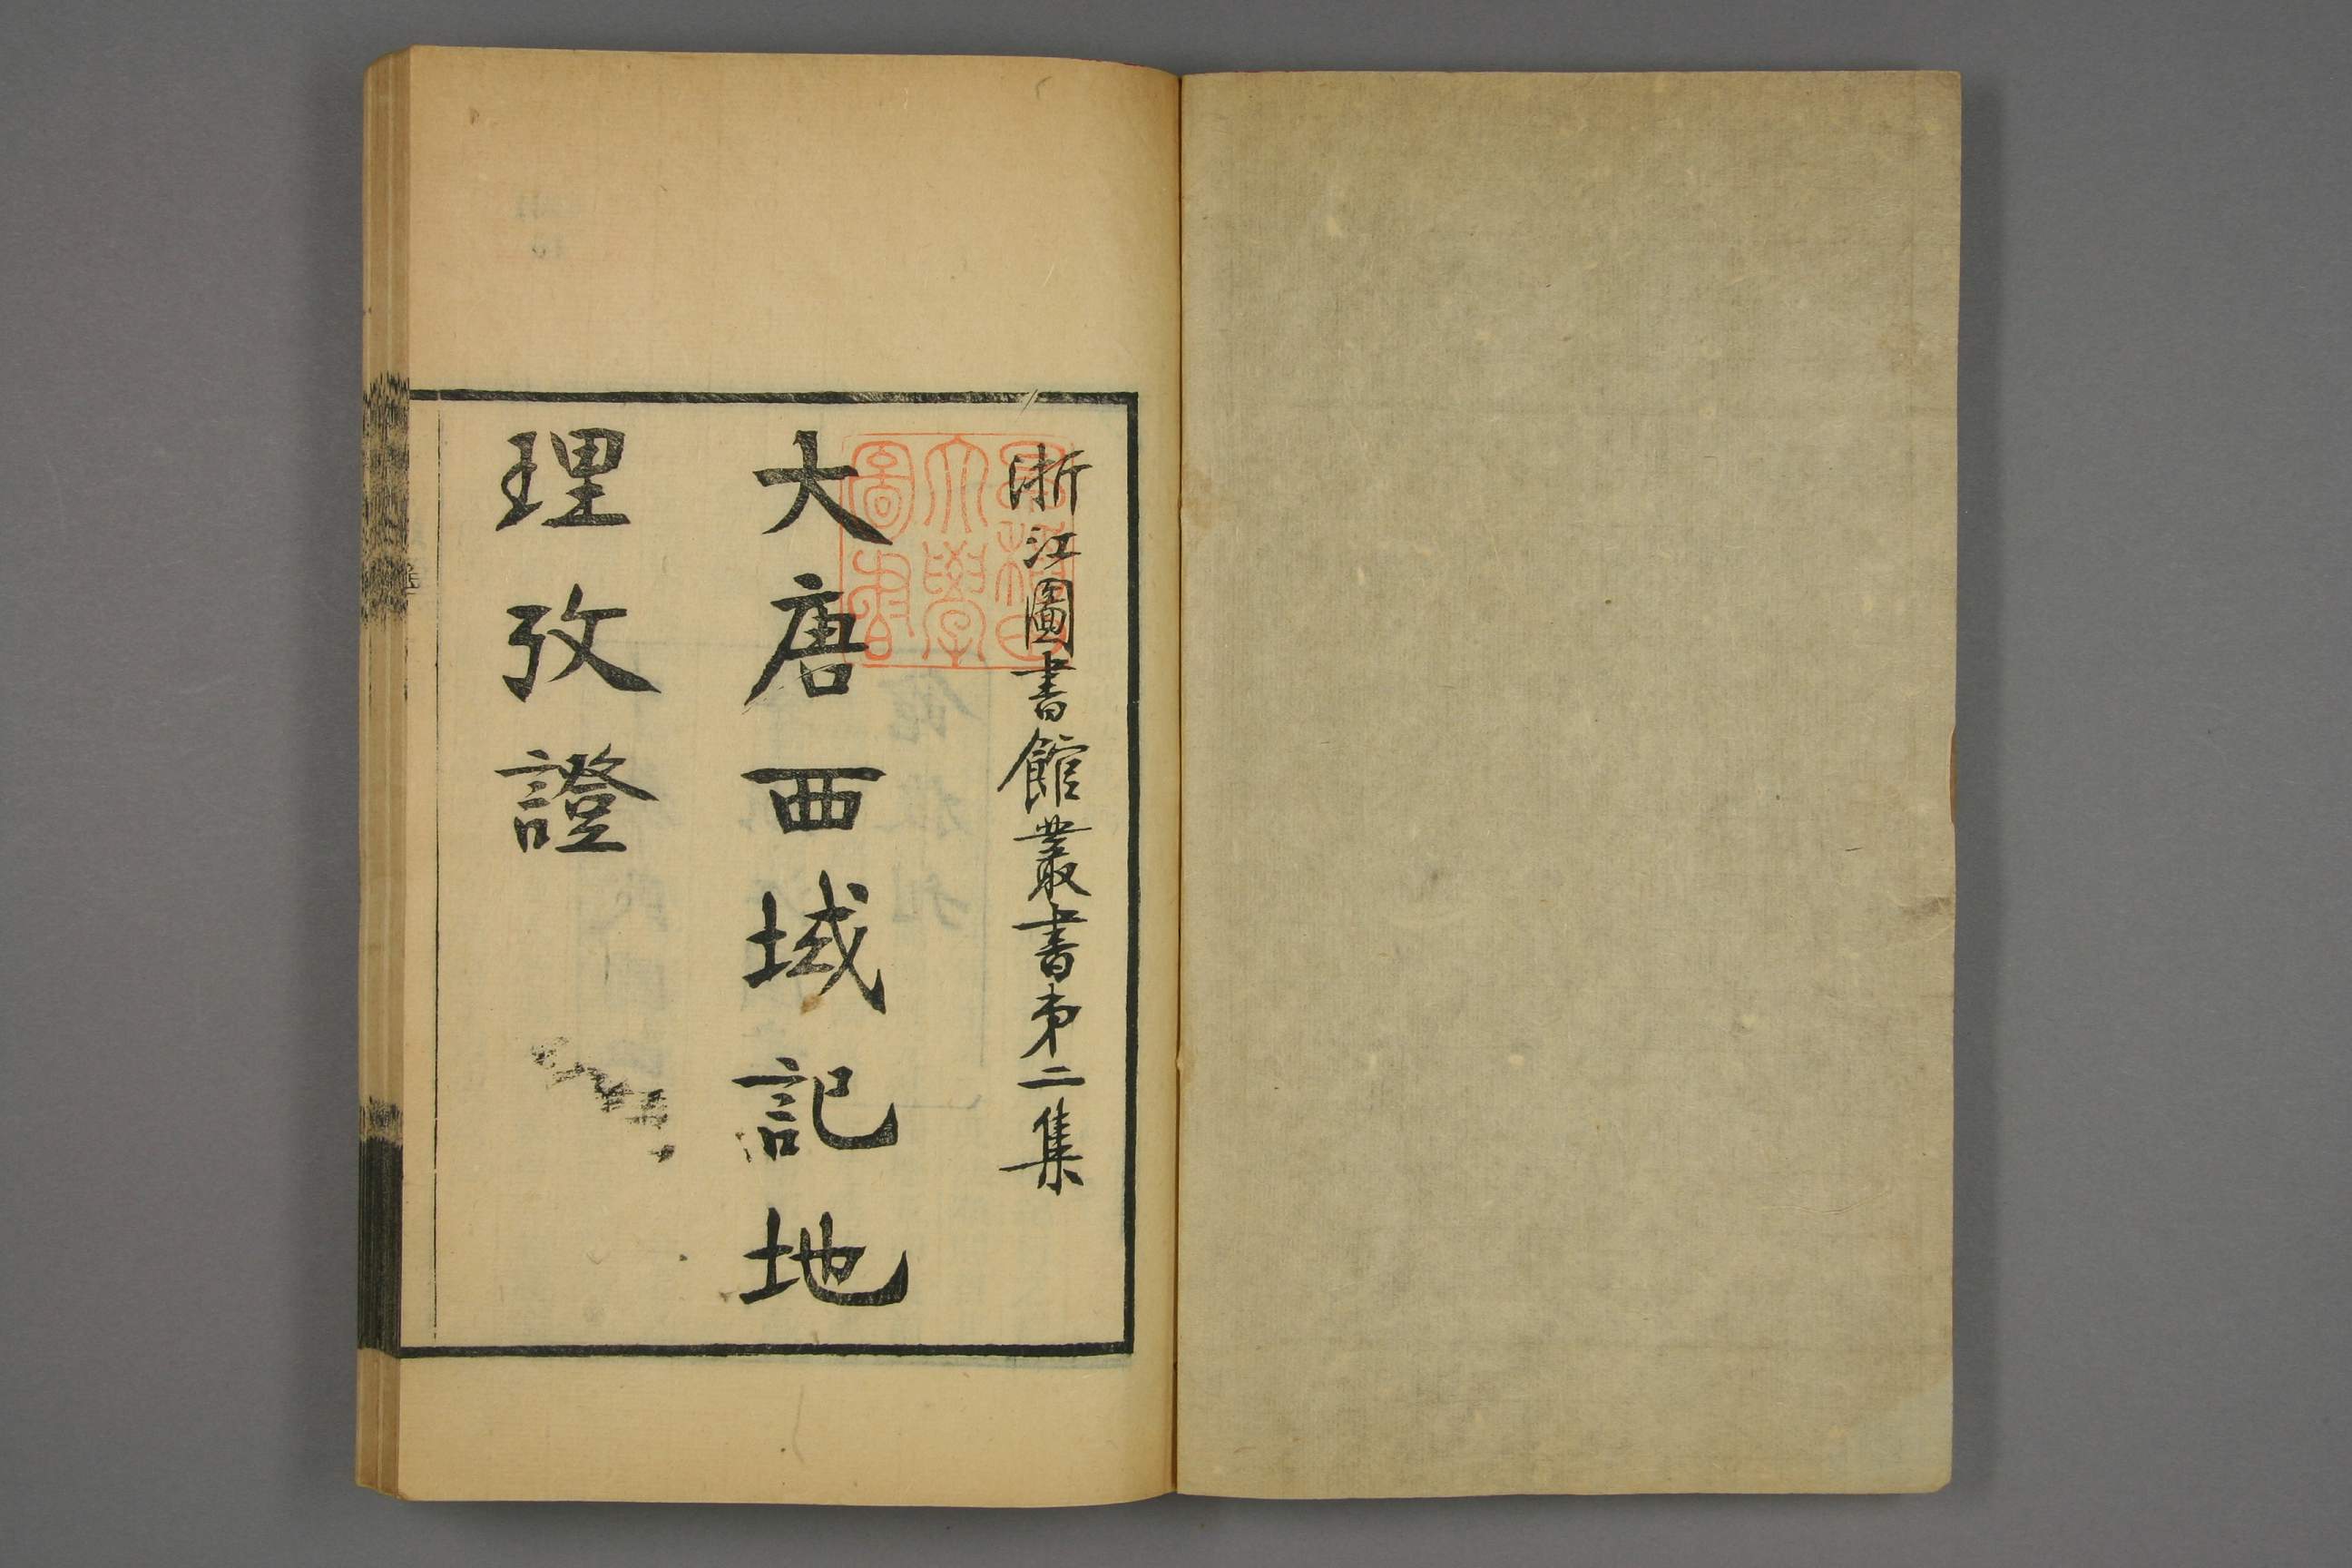 浙江圖書館叢書第二集
大唐西域記地
理攷證
早稲田
大學
圖書